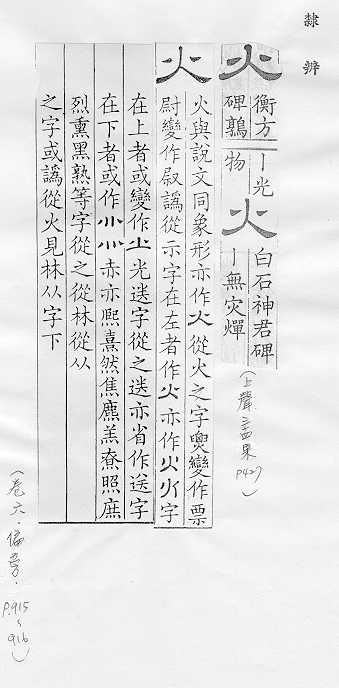 隸辨
火 衡方碑鶉｜光物 火 白石神君碑｜無灾燀
(上聲 P427)
火
火與說文同象形亦作火從火之字㷠變作票
尉變作㞡譌從示字在左者作火亦作火火字
在上者或變作 光送字從之送亦省作送字
在下者或作小灬 赤亦熙熹然焦麃羔尞照庶
烈熏黑熟等字從之從林從从
之字或譌從火見林从字下
(卷六．偏旁．P.915~916)